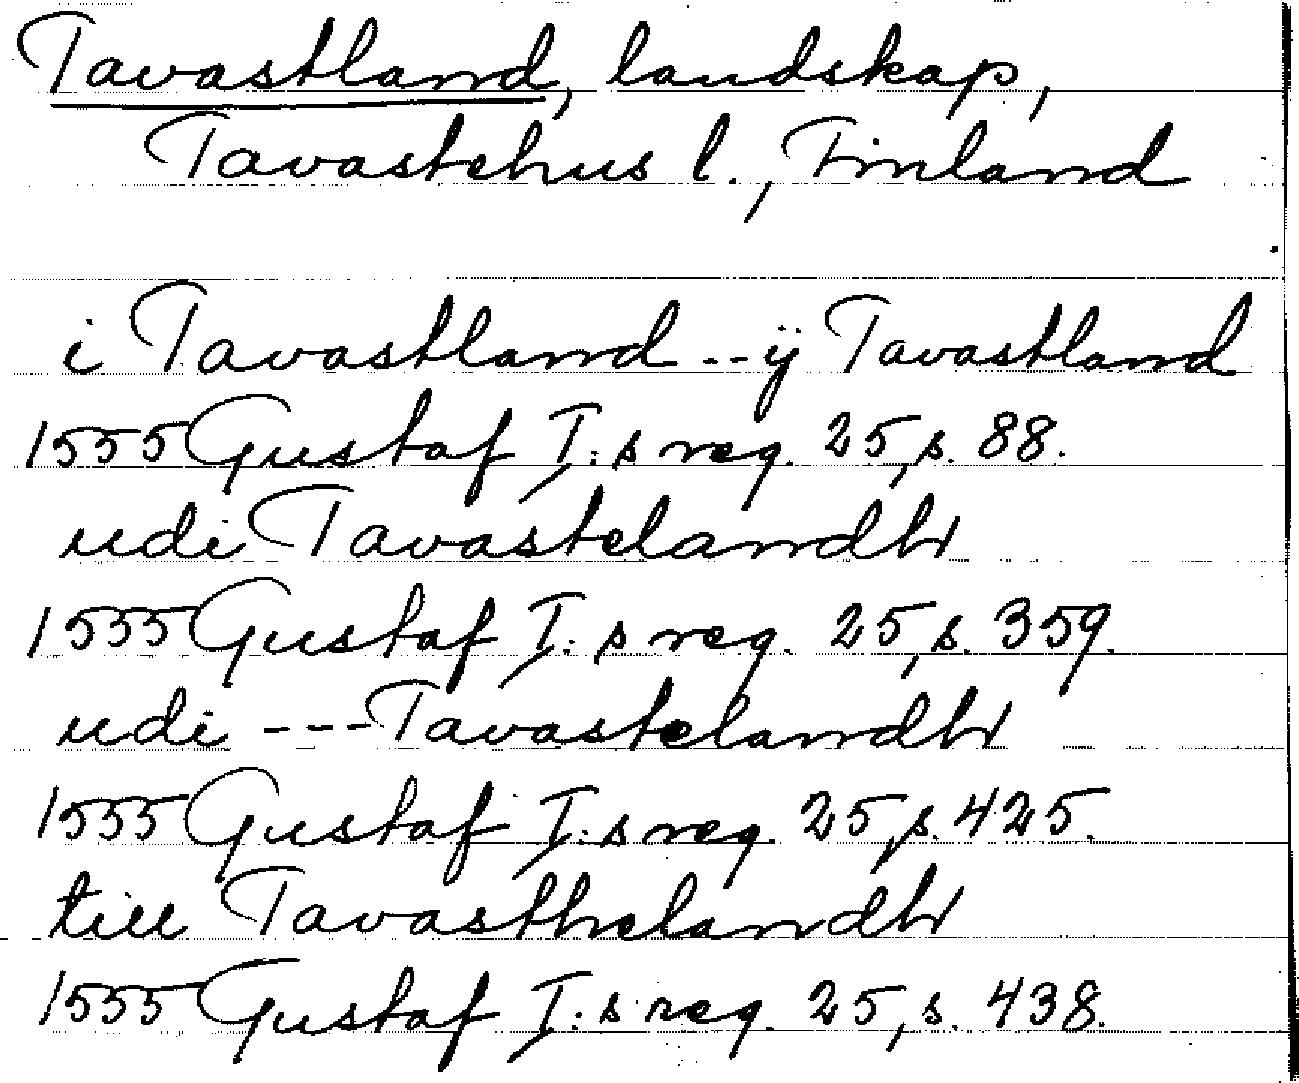 Tavastland, landskap,
Tavastehus l., Finland
i Tavastland -- ÿ Tavastland
1555 Gustaf I:s reg. 25, s. 88.
udi Tavastelandh
1555 Gustaf I:s reg. 25, s. 359.
udi --- Tavastelandh
1555 Gustaf I:s reg. 25, s. 425.
till Tavasthelandh
1555 Gustaf I:s reg. 25, s. 438.